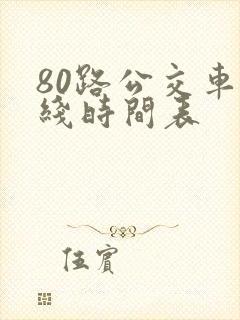 80路公交車
綫時間表
伍賓